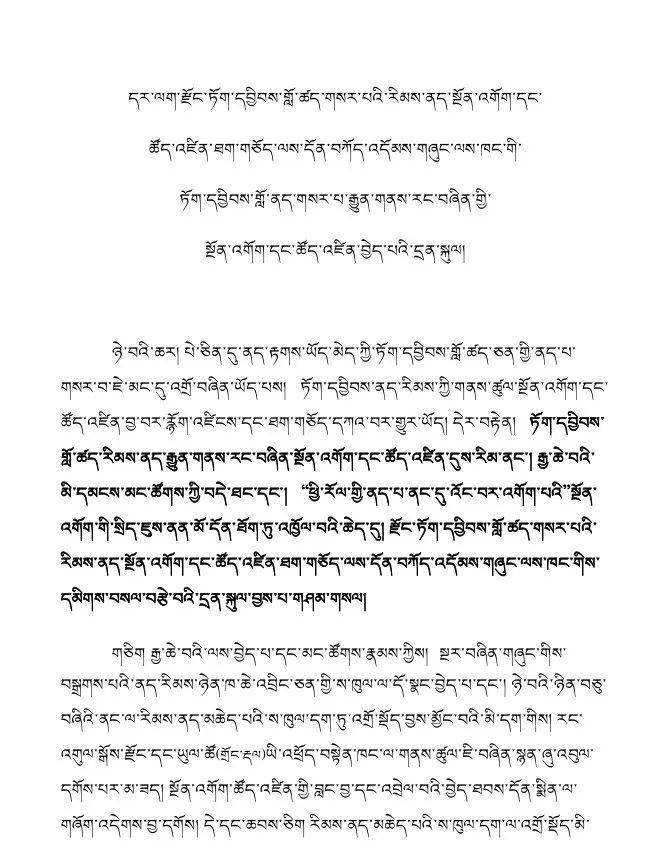 དར་ལག་རྫོང་ཏོག་དབྱིབས་གློ་ཚད་གསར་པའི་རིམས་ནད་སྔོན་འགོག་དང་
ཚོད་འཛིན་ཐག་གཅོད་ལས་དོན་བཀོད་འདོམས་གཞུང་ལས་ཁང་གི་
ཏོག་དབྱིབས་གློ་ནད་གསར་པ་རྒྱུན་གནས་རང་བཞིན་གྱི་
སྔོན་འགོག་དང་ཚོད་འཛིན་བྱེད་པའི་དྲན་སྐུལ།
ཉེ་བའི་ཆར། པེ་ཅིན་དུ་ནད་རྟགས་ཡོད་མེད་ཀྱི་ཏོག་དབྱིབས་གློ་ཚད་ཅན་གྱི་ནད་པ་
གསར་བ་ཇེ་མང་དུ་འགྲོ་བཞིན་ཡོད་པས། ཏོག་དབྱིབས་ནད་རིམས་ཀྱི་གནས་ཚུལ་སྔོན་འགོག་དང་
ཚོད་འཛིན་བྱ་བར་རྙོག་འཛིངས་དང་ཐག་གཅོད་དཀའ་བར་གྱུར་ཡོད། དེར་བརྟེན། ཏོག་དབྱིབས་
གློ་ཚད་རིམས་ནད་རྒྱུན་གནས་རང་བཞིན་སྔོན་འགོག་དང་ཚོད་འཛིན་དུས་རིམ་ནང་། རྒྱ་ཆེ་བའི་
མི་དམངས་མང་ཚོགས་ཀྱི་བདེ་ཐང་དང་། “ཕྱི་རོལ་གྱི་ནད་པ་ནང་དུ་འོང་བར་འགོག་པའི”སྔོན་
འགོག་གི་སྲིད་ཇུས་ནན་མོ་དོན་ཐོག་ཏུ་འཁྱོལ་བའི་ཆེད་དུ། རྫོང་ཏོག་དབྱིབས་གློ་ཚད་གསར་པའི་
རིམས་ནད་སྔོན་འགོག་དང་ཚོད་འཛིན་ཐག་གཅོད་ལས་དོན་བཀོད་འདོམས་གཞུང་ལས་ཁང་གིས་
དམིགས་བསལ་བརྩེ་བའི་དྲན་སྐུལ་བྱས་པ་གཤམ་གསལ།
གཅིག རྒྱ་ཆེ་བའི་ལས་བྱེད་པ་དང་མང་ཚོགས་རྣམས་ཀྱིས། སྔར་བཞིན་གཞུང་གིས་
བསྒྲགས་པའི་ནད་རིམས་ཉེན་ཁ་ཆེ་འབྲིང་ཅན་གྱི་ས་ཁུལ་ལ་དོ་སྣང་བྱེད་པ་དང་། ཉེ་བའི་ཉིན་བཅུ་
བཞིའི་ནང་ལ་རིམས་ནད་མཆེད་པའི་ས་ཁུལ་དག་ཏུ་འགྲོ་སྡོད་བྱས་མྱོང་བའི་མི་དག་གིས། རང་
འགུལ་སྒོས་རྫོང་དང་ཡུལ་ཚོ(གྲོང་རྡལ)ཡི་འཕྲོད་བསྟེན་ཁང་ལ་གནས་ཚུལ་ཇི་བཞིན་སྙན་ཞུ་འབུལ་
དགོས་པར་མ་ཟད། སྔོན་འགོག་ཚོད་འཛིན་གྱི་བླང་བྱ་དང་འབྲེལ་བའི་བྱེད་ཐབས་དོན་སྨིན་ལ་
གཞོག་འདེགས་བྱ་དགོས། དེ་དང་ཆབས་ཅིག རིམས་ནད་མཆེད་པའི་ས་ཁུལ་དག་ལ་འགྲོ་སྡོད་མི་